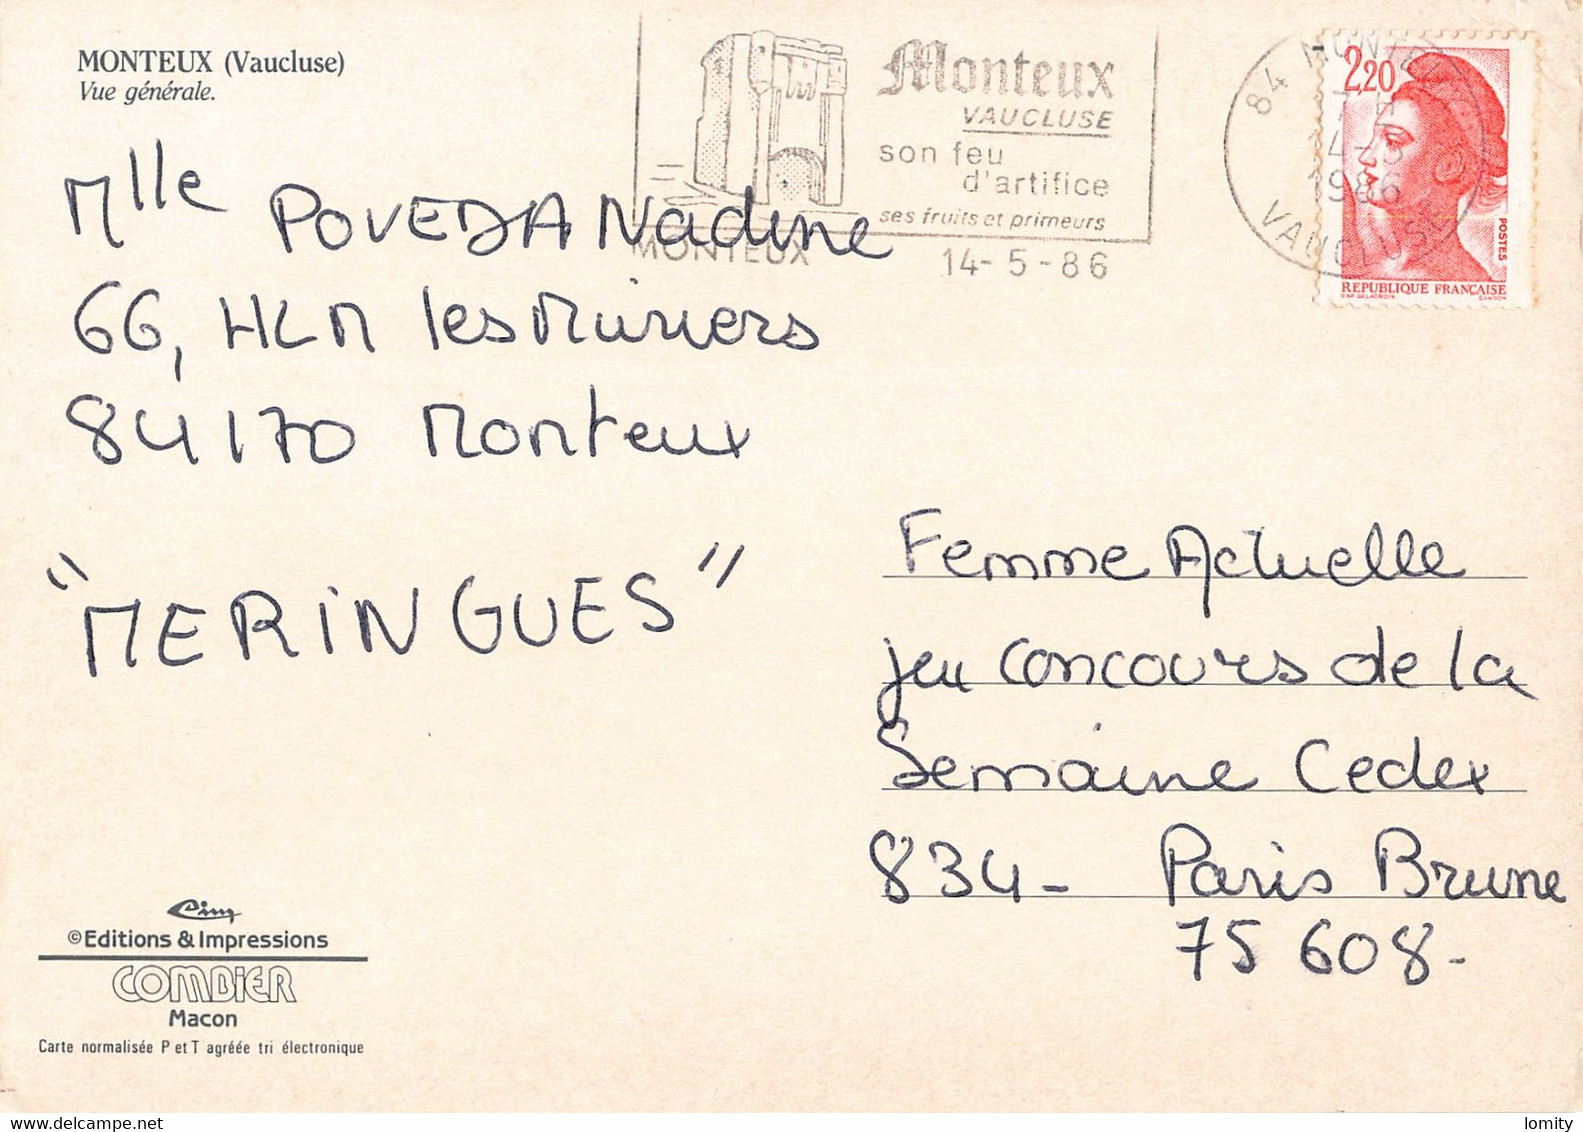 MONTEUX (Vaucluse)
Vue générale.
Monteux
VAUCLUSE
son feu
d'artifice
ses fruits et primeurs
MONTEUX
14-5-86
84 MONTEUX
14-5
1986
VAUCLUSE
2,20
POSTES
REPUBLIQUE FRANÇAISE
D'AP. DELACROIX
GANDON
Mlle POVEDA Nadine
66, HLM les Mûriers
84170 Monteux
"MERINGUES"
Femme Actuelle
jeu concours de la
Semaine Cedex
834 - Paris Brune
75 608 -
Cim
©Editions & Impressions
COMBIER
Macon
Carte normalisée P et T agréée tri électronique
lomity